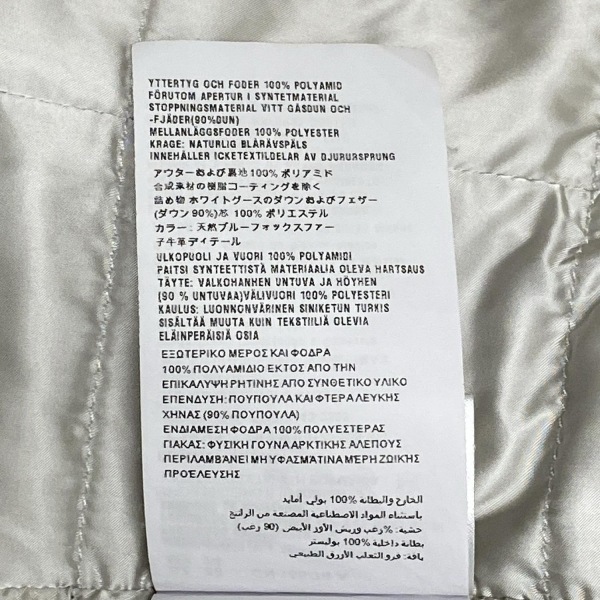 YTTERTYG OCH FODER 100% POLYAMID
FÖRUTOM APERTUR I SYNTETMATERIAL
STOPPNINGSMATERIAL VITT GÅSDUN OCH
-FJÄDER(90%DUN)
MELLANLÄGGSFODER 100% POLYESTER
KRAGE: NATURLIG BLÅRÄVSPÄLS
INNEHÅLLER ICKETEXTILDELAR AV DJURURSPRUNG
アウターおよび裏地100% ポリアミド
合成素材の樹脂コーティングを除く
詰め物 ホワイトグースのダウンおよびフェザー
(ダウン 90%)芯 100% ポリエステル
カラー: 天然ブルーフォックスファー
子牛革ディテール
ULKOPUOLI JA VUORI 100% POLYAMIDI
PAITSI SYNTEETTISTÄ MATERIAALIA OLEVA HARTSAUS
TÄYTE: VALKOHANHEN UNTUVA JA HÖYHEN
(90 % UNTUVAA)VÄLIVUORI 100% POLYESTERI
KAULUS: LUONNONVÄRINEN SINIKETUN TURKIS
SISÄLTÄÄ MUUTA KUIN TEKSTIILIÄ OLEVIA
ELÄINPERÄISIÄ OSIA
ΕΞΩΤΕΡΙΚΟ ΜΕΡΟΣ ΚΑΙ ΦΟΔΡΑ
100% ΠΟΛΥΑΜΙΔΙΟ ΕΚΤΟΣ ΑΠΟ ΤΗΝ
ΕΠΙΚΑΛΥΨΗ ΡΗΤΙΝΗΣ ΑΠΟ ΣΥΝΘΕΤΙΚΟ ΥΛΙΚΟ
ΕΠΕΝΔΥΣΗ: ΠΟΥΠΟΥΛΑ ΚΑΙ ΦΤΕΡΑ ΛΕΥΚΗΣ
ΧΗΝΑΣ (90% ΠΟΥΠΟΥΛΑ)
ΕΝΔΙΑΜΕΣΗ ΦΟΔΡΑ 100% ΠΟΛΥΕΣΤΕΡΑΣ
ΓΙΑΚΑΣ: ΦΥΣΙΚΗ ΓΟΥΝΑ ΑΡΚΤΙΚΗΣ ΑΛΕΠΟΥΣ
ΠΕΡΙΛΑΜΒΑΝΕΙ ΜΗ ΥΦΑΣΜΑΤΙΝΑ ΜΕΡΗ ΖΩΙΚΗΣ
ΠΡΟΕΛΕΥΣΗΣ
الخارج والبطانة 100% بولي أمايد
باستثناء المواد الاصطناعية المصنعة من الراتنج
حشية: %زغب وريش الأوز الأبيض (90 زغب)
بطانة داخلية 100% بوليستر
ياقة: فرو الثعلب الأزرق الطبيعي